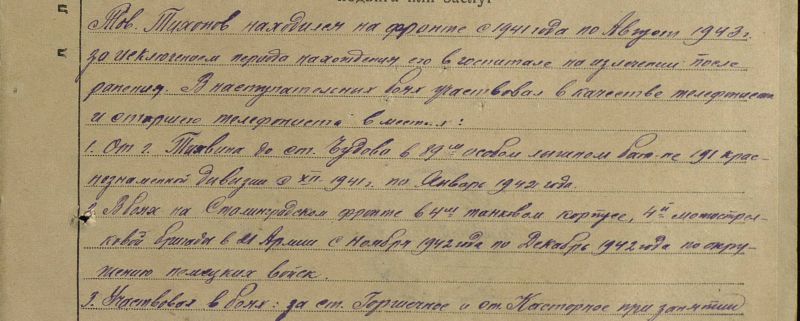 подвига или заслуг
Тов. Тихонов находился на фронте с 1941 года по Август 1943 г.
за исключением периода нахождения его в госпитале на излечении после
ранения. В наступательных боях участвовал в качестве телефониста
и старшего телефониста в местах:
1. От г. Тихвина до ст. Чудово в 89ом особом лыжном бат-не 191 крас-
нознаменной дивизии с XII 1941 г. по Январь 1942 года.
2. В боях на Сталинградском фронте в 4ом танковом корпусе, 4й мотострел-
ковой бригада в 21 Армии с Ноября 1942 года по Декабрь 1942 года по окру-
жению немецких войск.
3. Участвовал в боях: за ст. Горшечное и ст. Касторное при занятии